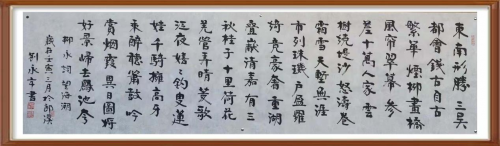 東南形勝三吳
都會錢塘自古
繁華煙柳畫橋
風簾翠幕參
差十萬人家雲
樹繞堤沙怒濤卷
霜雪天塹無涯
市列珠璣戶盈羅
綺競豪奢重湖
疊巘清嘉有三
秋桂子十里荷花
羌管弄晴菱歌
泛夜嬉〻釣叟蓮
娃千騎擁高牙
乘醉聽簫鼓吟
賞煙霞異日圖將
好景歸去鳳池夸
柳永詞望海潮
歲在壬寅三月於
劉永書